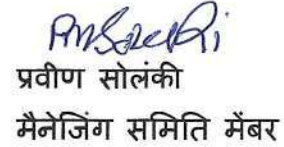 प्रवीण सोलंकी
मैनेजिंग समिति मेंबर